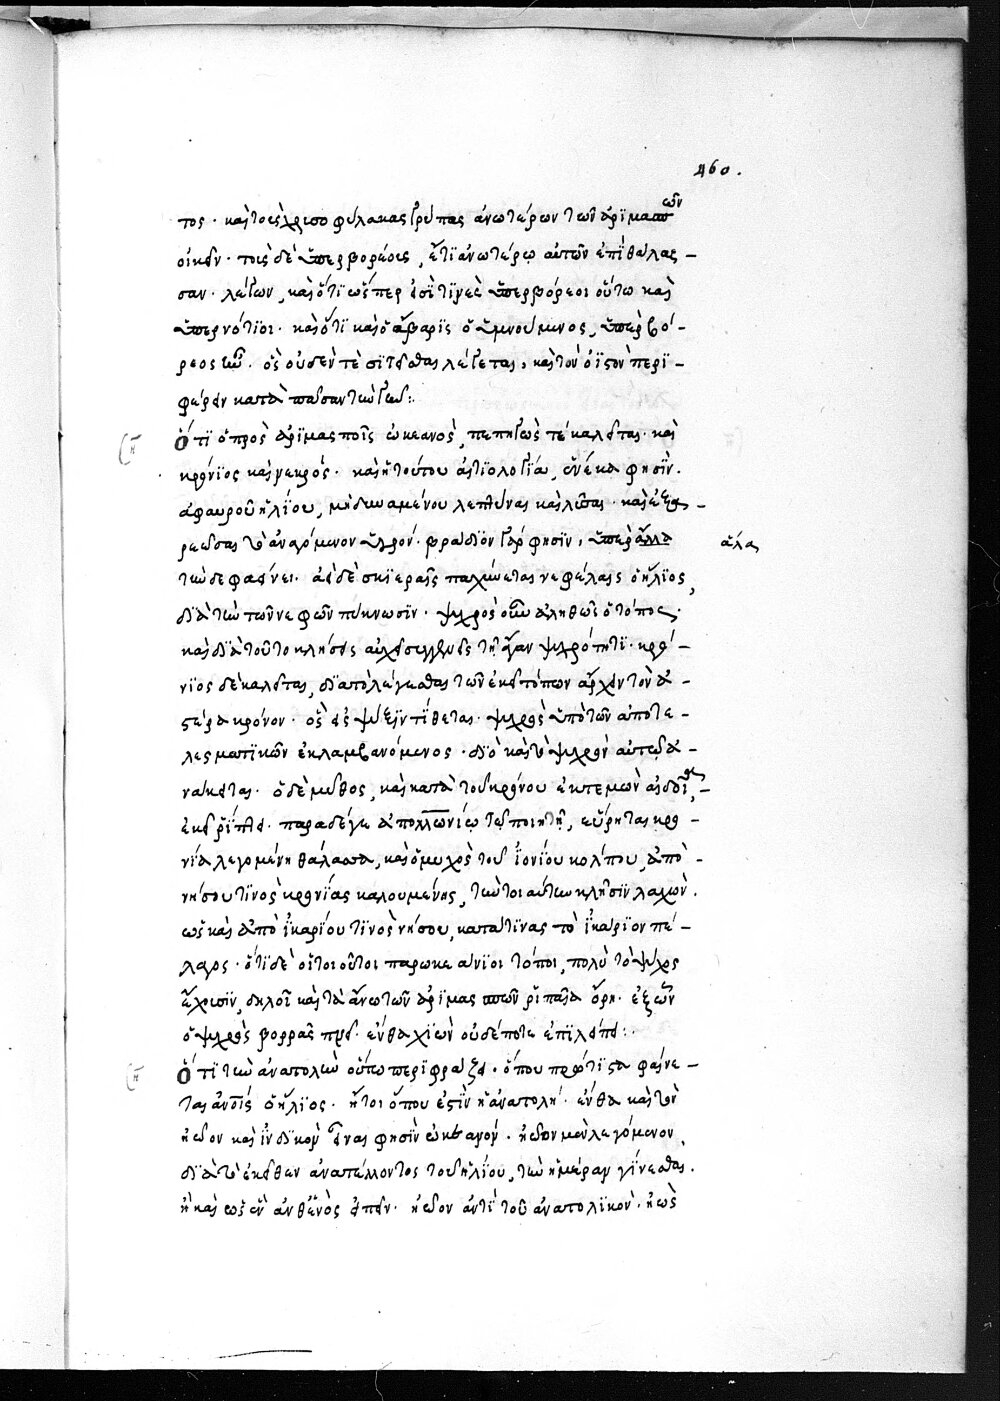 460.
τος· καὶ τοὺς χρυσοφύλακας γρύπας ἀνωτέρων τῶν ἀριμασπῶν
οἰκεῖν· τοὺς δὲ ὑπερβορέους, ἔτι ἀνωτέρω αὐτῶν ἐπὶ θάλας-
σαν· λέγων, καὶ ὅτι ὥσπερ εἰσί τινες ὑπερβόρεοι οὕτω καὶ
ὑπερνότιοι· καὶ ὅτι καὶ ὁ ἄβαρις ὁ ὑμνούμενος, ὑπερβό-
ρεος ἦν· ὃς οὐδέν τε σιτεῖσθαι λέγεται, καὶ τὸν ὀϊστὸν περι-
φέρειν κατὰ πᾶσαν τὴν γῆν:
Ὅτι ὁ πρὸς ἀριμασποῖς ὠκεανὸς, πεπηγώς τε καλεῖται· καὶ
κρόνιος καὶ νεκρός· καὶ ἡ τούτου αἰτιολογία, ἕνεκά φησιν
ἀφαυροῦ ἡλίου, μὴ δυναμένου λεπτύναι καὶ λῦσαι· καὶ ἐξα-
ρεῶσαι τὸ ἀναγόμενον ὑγρόν· βράδιον γάρ φησιν, ὑπὲρ ἅλλα
ἅλα
τὴν δε φαείνει· ἀεὶ δὲ σκιεραῖς παχύνεται νεφέλαις ὁ ἥλιος,
διὰ τὴν τῶν νεφῶν πύκνωσιν· ψυχρὸς οὖν ἀληθῶς ὁ τόπος·
καὶ διὰ τοῦτο κλήσεις αὐχεῖ συγγενεῖς τῇ ἄγαν ψυχρότητι· κρό-
νιος δὲ καλεῖται, διὰ τὸ λέγεσθαι τῶν ἐκεῖ τόπων ἄρχειν τὸν ἀ-
στέρα κρόνον· ὃς εἰς ψῦξιν τίθεται· ψυχρὸς ὑπὸ τῶν ἀποτε-
λεσματικῶν ἐκλαμβανόμενος· διὸ καὶ τὸ ψυχρὸν αὐτῷ ἀ-
νάκειται· ὁ δὲ μῦθος, καὶ κατὰ τοῦ κρόνου ἐκτεμὼν αἰδοῖα,-
ἐκεῖ ῥίπτει· παρὰ δέ γε ἀπολλωνίῳ τῷ ποιητῇ, εὕρηται κρο-
νία λεγομένη θάλασσα, καὶ ὁ μυχὸς τοῦ ἰονίου κόλπου, ἀπὸ-
νήσου τινὸς κρονίας καλουμένης, τὴν τοιαύτην κλῆσιν λαχών.
ὡς καὶ ἀπὸ ἰκαρίου τινὸς νήσου, κατά τινας τὸ ἰκάριον πέ-
λαγος· ὅτι δὲ οἱ τοιοῦτοι παρωκεανῖοι τόποι, πολὺ τὸ ψῦχος
ἔχουσιν, δηλοῖ καὶ τὰ ἄνω τῶν ἀριμασπῶν ῥιπαῖα ὄρη· ἐξ ὧν
ὁ ψυχρὸς βορρᾶς πνεῖ· ἔνθα χιὼν οὐδέποτε ἐπιλείπει:
Ὅτι τὴν ἀνατολὴν οὕτω περιφράζει· ὅπου πρώτιστα φαίνε-
ται ἀνοῖς ὁ ἥλιος· ἤτοι ὅπου ἐστὶν ἡ ἀνατολή· ἔνθα καὶ τὸν
ἠῶον καὶ ἰνδικὸν εἶναι φησὶν ὠκεανὸν· ἠῶον μὲν λεγόμενον,
διὰ τὸ ἐκεῖθεν ἀνατέλλοντος τοῦ ἡλίου, τὴν ἡμέραν γίνεσθαι.
ἢ καὶ ὡς ἂν ἀνθεινὸς εἰπεῖν· ἠῶον ἀντὶ τοῦ ἀνατολικόν· ἠὼς